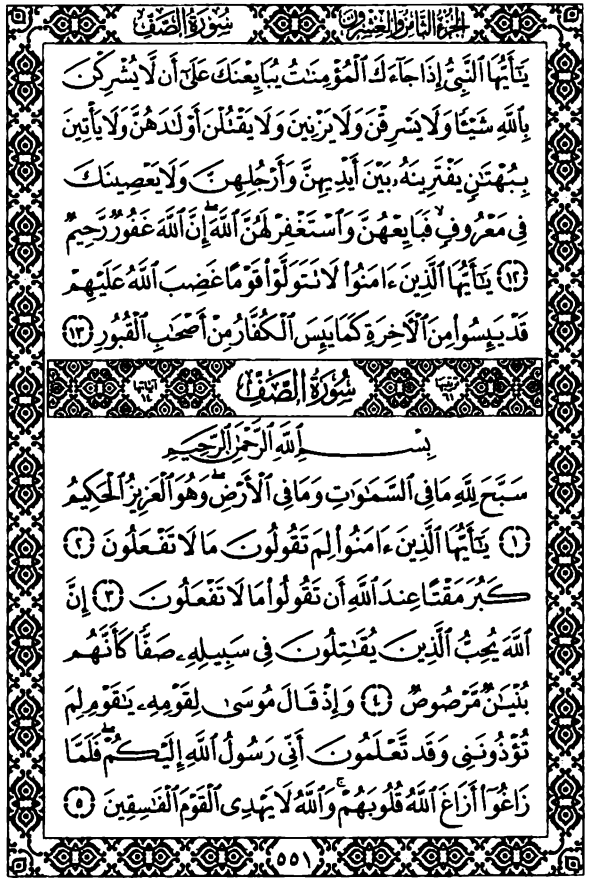 الجزء الثامن والعشرون سورة الصف
يَٰٓأَيُّهَا ٱلنَّبِىُّ إِذَا جَآءَكَ ٱلْمُؤْمِنَٰتُ يُبَايِعْنَكَ عَلَىٰٓ أَن لَّا يُشْرِكْنَ
بِٱللَّهِ شَيْـًٔا وَلَا يَسْرِقْنَ وَلَا يَزْنِينَ وَلَا يَقْتُلْنَ أَوْلَٰدَهُنَّ وَلَا يَأْتِينَ
بِبُهْتَٰنٍ يَفْتَرِينَهُۥ بَيْنَ أَيْدِيهِنَّ وَأَرْجُلِهِنَّ وَلَا يَعْصِينَكَ
فِى مَعْرُوفٍ ۙ فَبَايِعْهُنَّ وَٱسْتَغْفِرْ لَهُنَّ ٱللَّهَ ۖ إِنَّ ٱللَّهَ غَفُورٌ رَّحِيمٌ
١٢ يَٰٓأَيُّهَا ٱلَّذِينَ ءَامَنُوا۟ لَا تَتَوَلَّوْا۟ قَوْمًا غَضِبَ ٱللَّهُ عَلَيْهِمْ
قَدْ يَئِسُوا۟ مِنَ ٱلْءَاخِرَةِ كَمَا يَئِسَ ٱلْكُفَّارُ مِنْ أَصْحَٰبِ ٱلْقُبُورِ ١٣
ترتيبها ٦١ سورة الصف آياتها ١٤
بِسْمِ ٱللَّهِ ٱلرَّحْمَٰنِ ٱلرَّحِيمِ
سَبَّحَ لِلَّهِ مَا فِى ٱلسَّمَٰوَٰتِ وَمَا فِى ٱلْأَرْضِ ۖ وَهُوَ ٱلْعَزِيزُ ٱلْحَكِيمُ
١ يَٰٓأَيُّهَا ٱلَّذِينَ ءَامَنُوا۟ لِمَ تَقُولُونَ مَا لَا تَفْعَلُونَ ٢
كَبُرَ مَقْتًا عِندَ ٱللَّهِ أَن تَقُولُوا۟ مَا لَا تَفْعَلُونَ ٣ إِنَّ
ٱللَّهَ يُحِبُّ ٱلَّذِينَ يُقَٰتِلُونَ فِى سَبِيلِهِۦ صَفًّا كَأَنَّهُم
بُنْيَٰنٌ مَّرْصُوصٌ ٤ وَإِذْ قَالَ مُوسَىٰ لِقَوْمِهِۦ يَٰقَوْمِ لِمَ
تُؤْذُونَنِى وَقَد تَّعْلَمُونَ أَنِّى رَسُولُ ٱللَّهِ إِلَيْكُمْ ۖ فَلَمَّا
زَاغُوٓا۟ أَزَاغَ ٱللَّهُ قُلُوبَهُمْ ۚ وَٱللَّهُ لَا يَهْدِى ٱلْقَوْمَ ٱلْفَٰسِقِينَ ٥
٥٥١